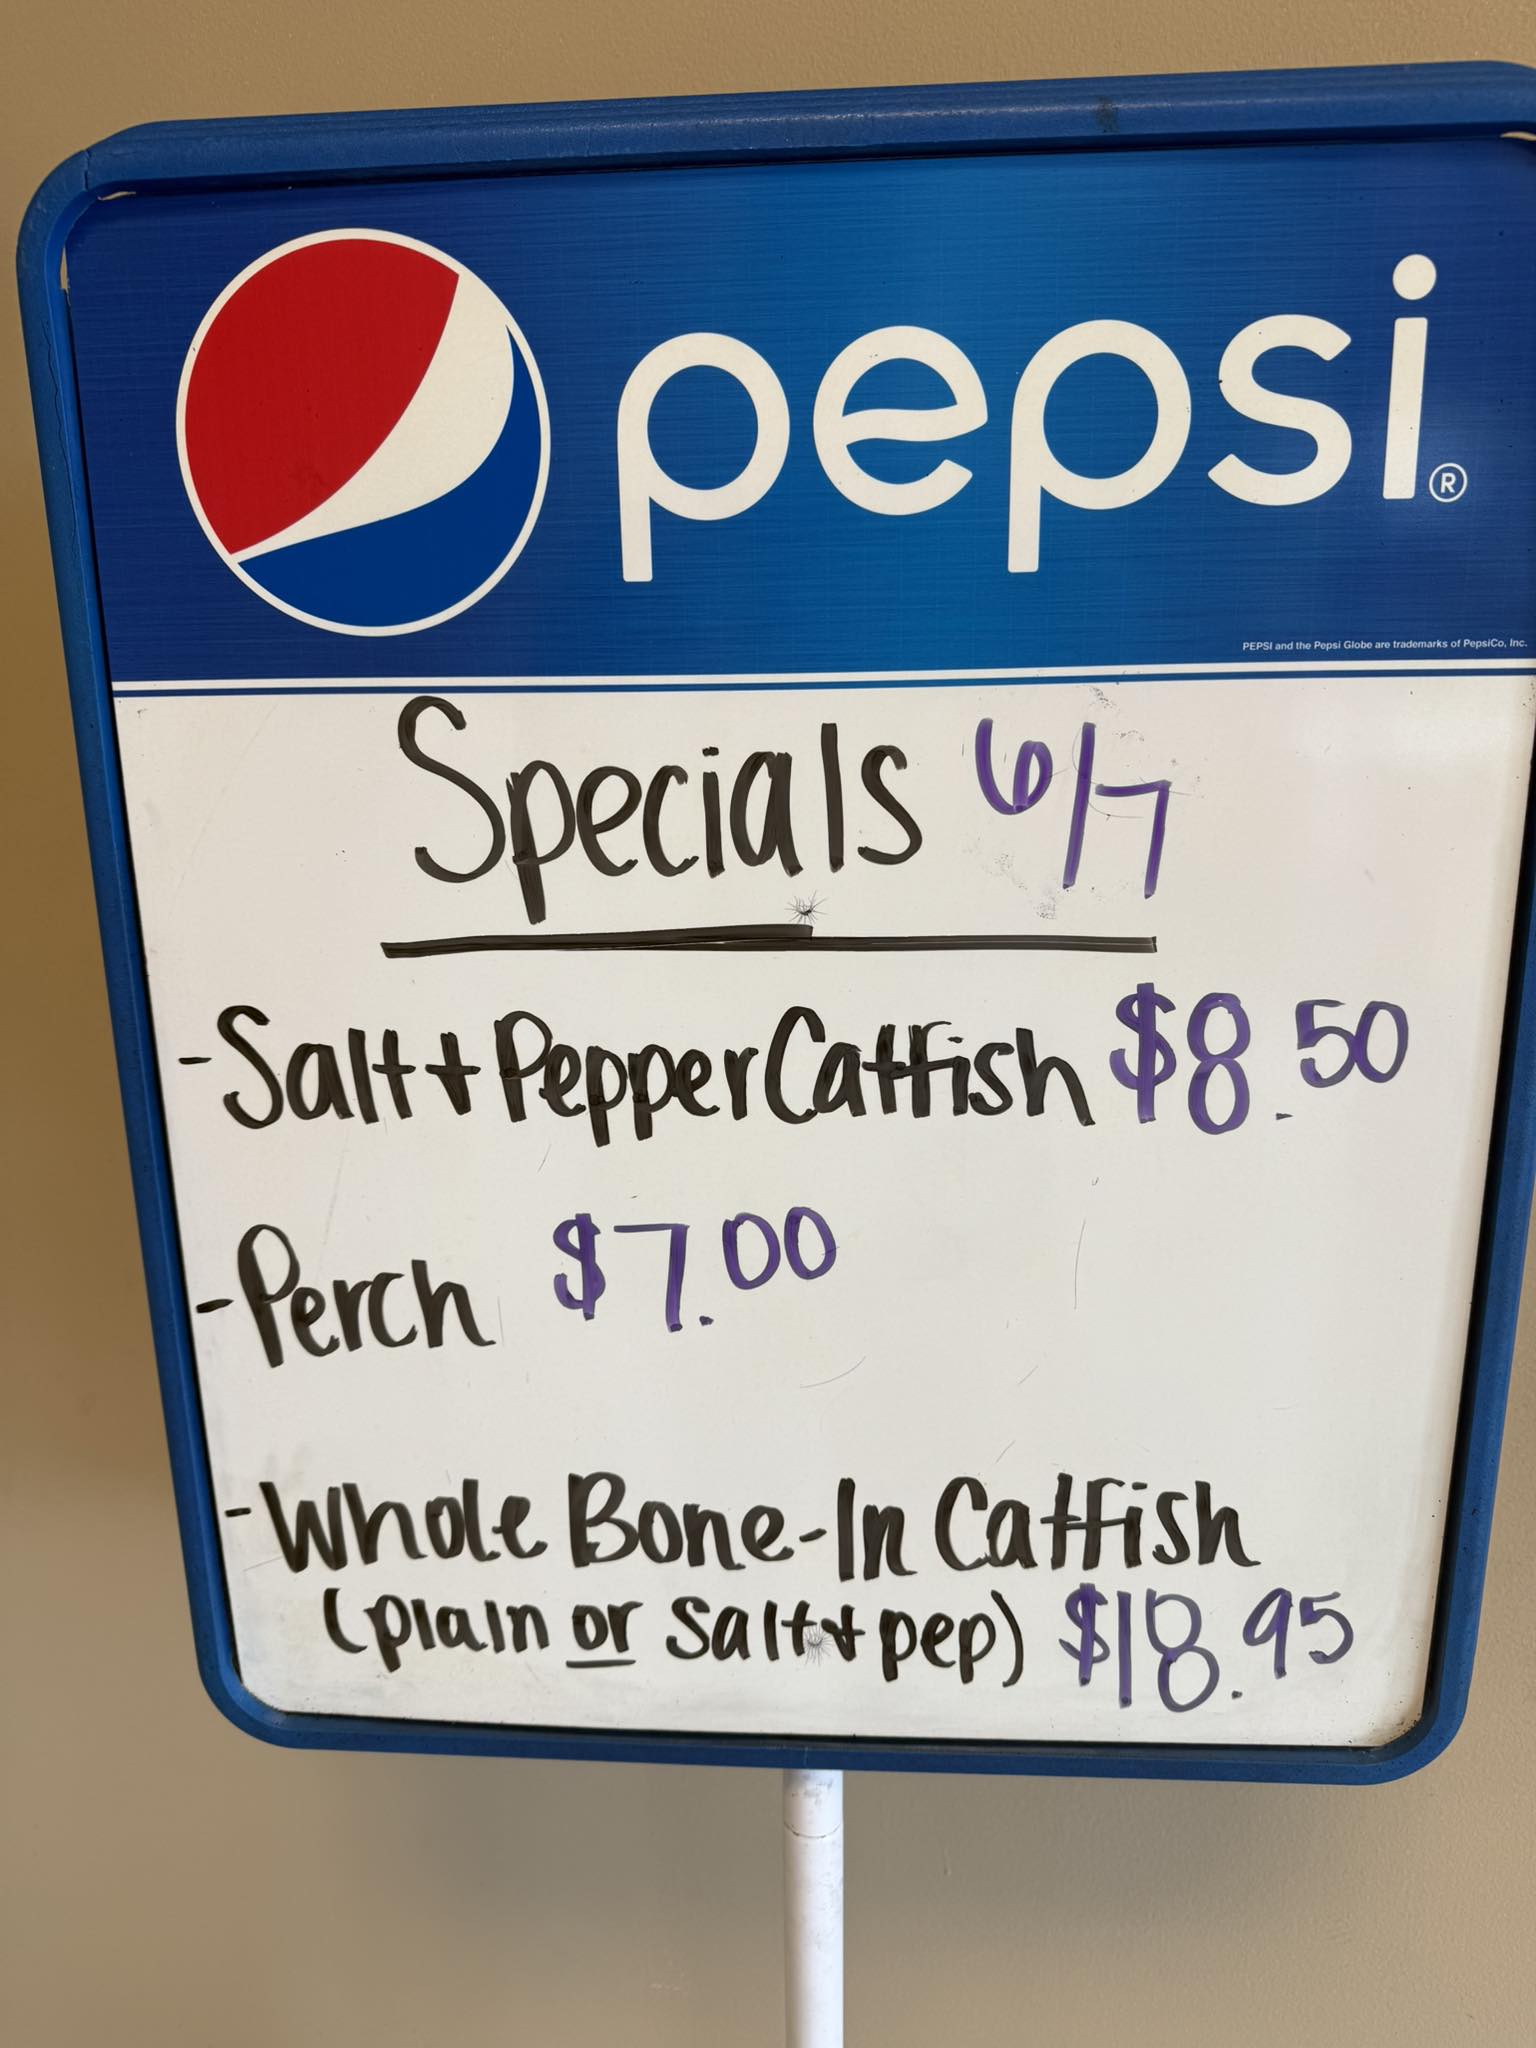 pepsi®
PEPSI and the Pepsi Globe are trademarks of PepsiCo, Inc.
Specials 6/7
-Salt + Pepper Catfish $8.50
-Perch $7.00
-Whole Bone-In Catfish
(plain or salt + pep) $18.95